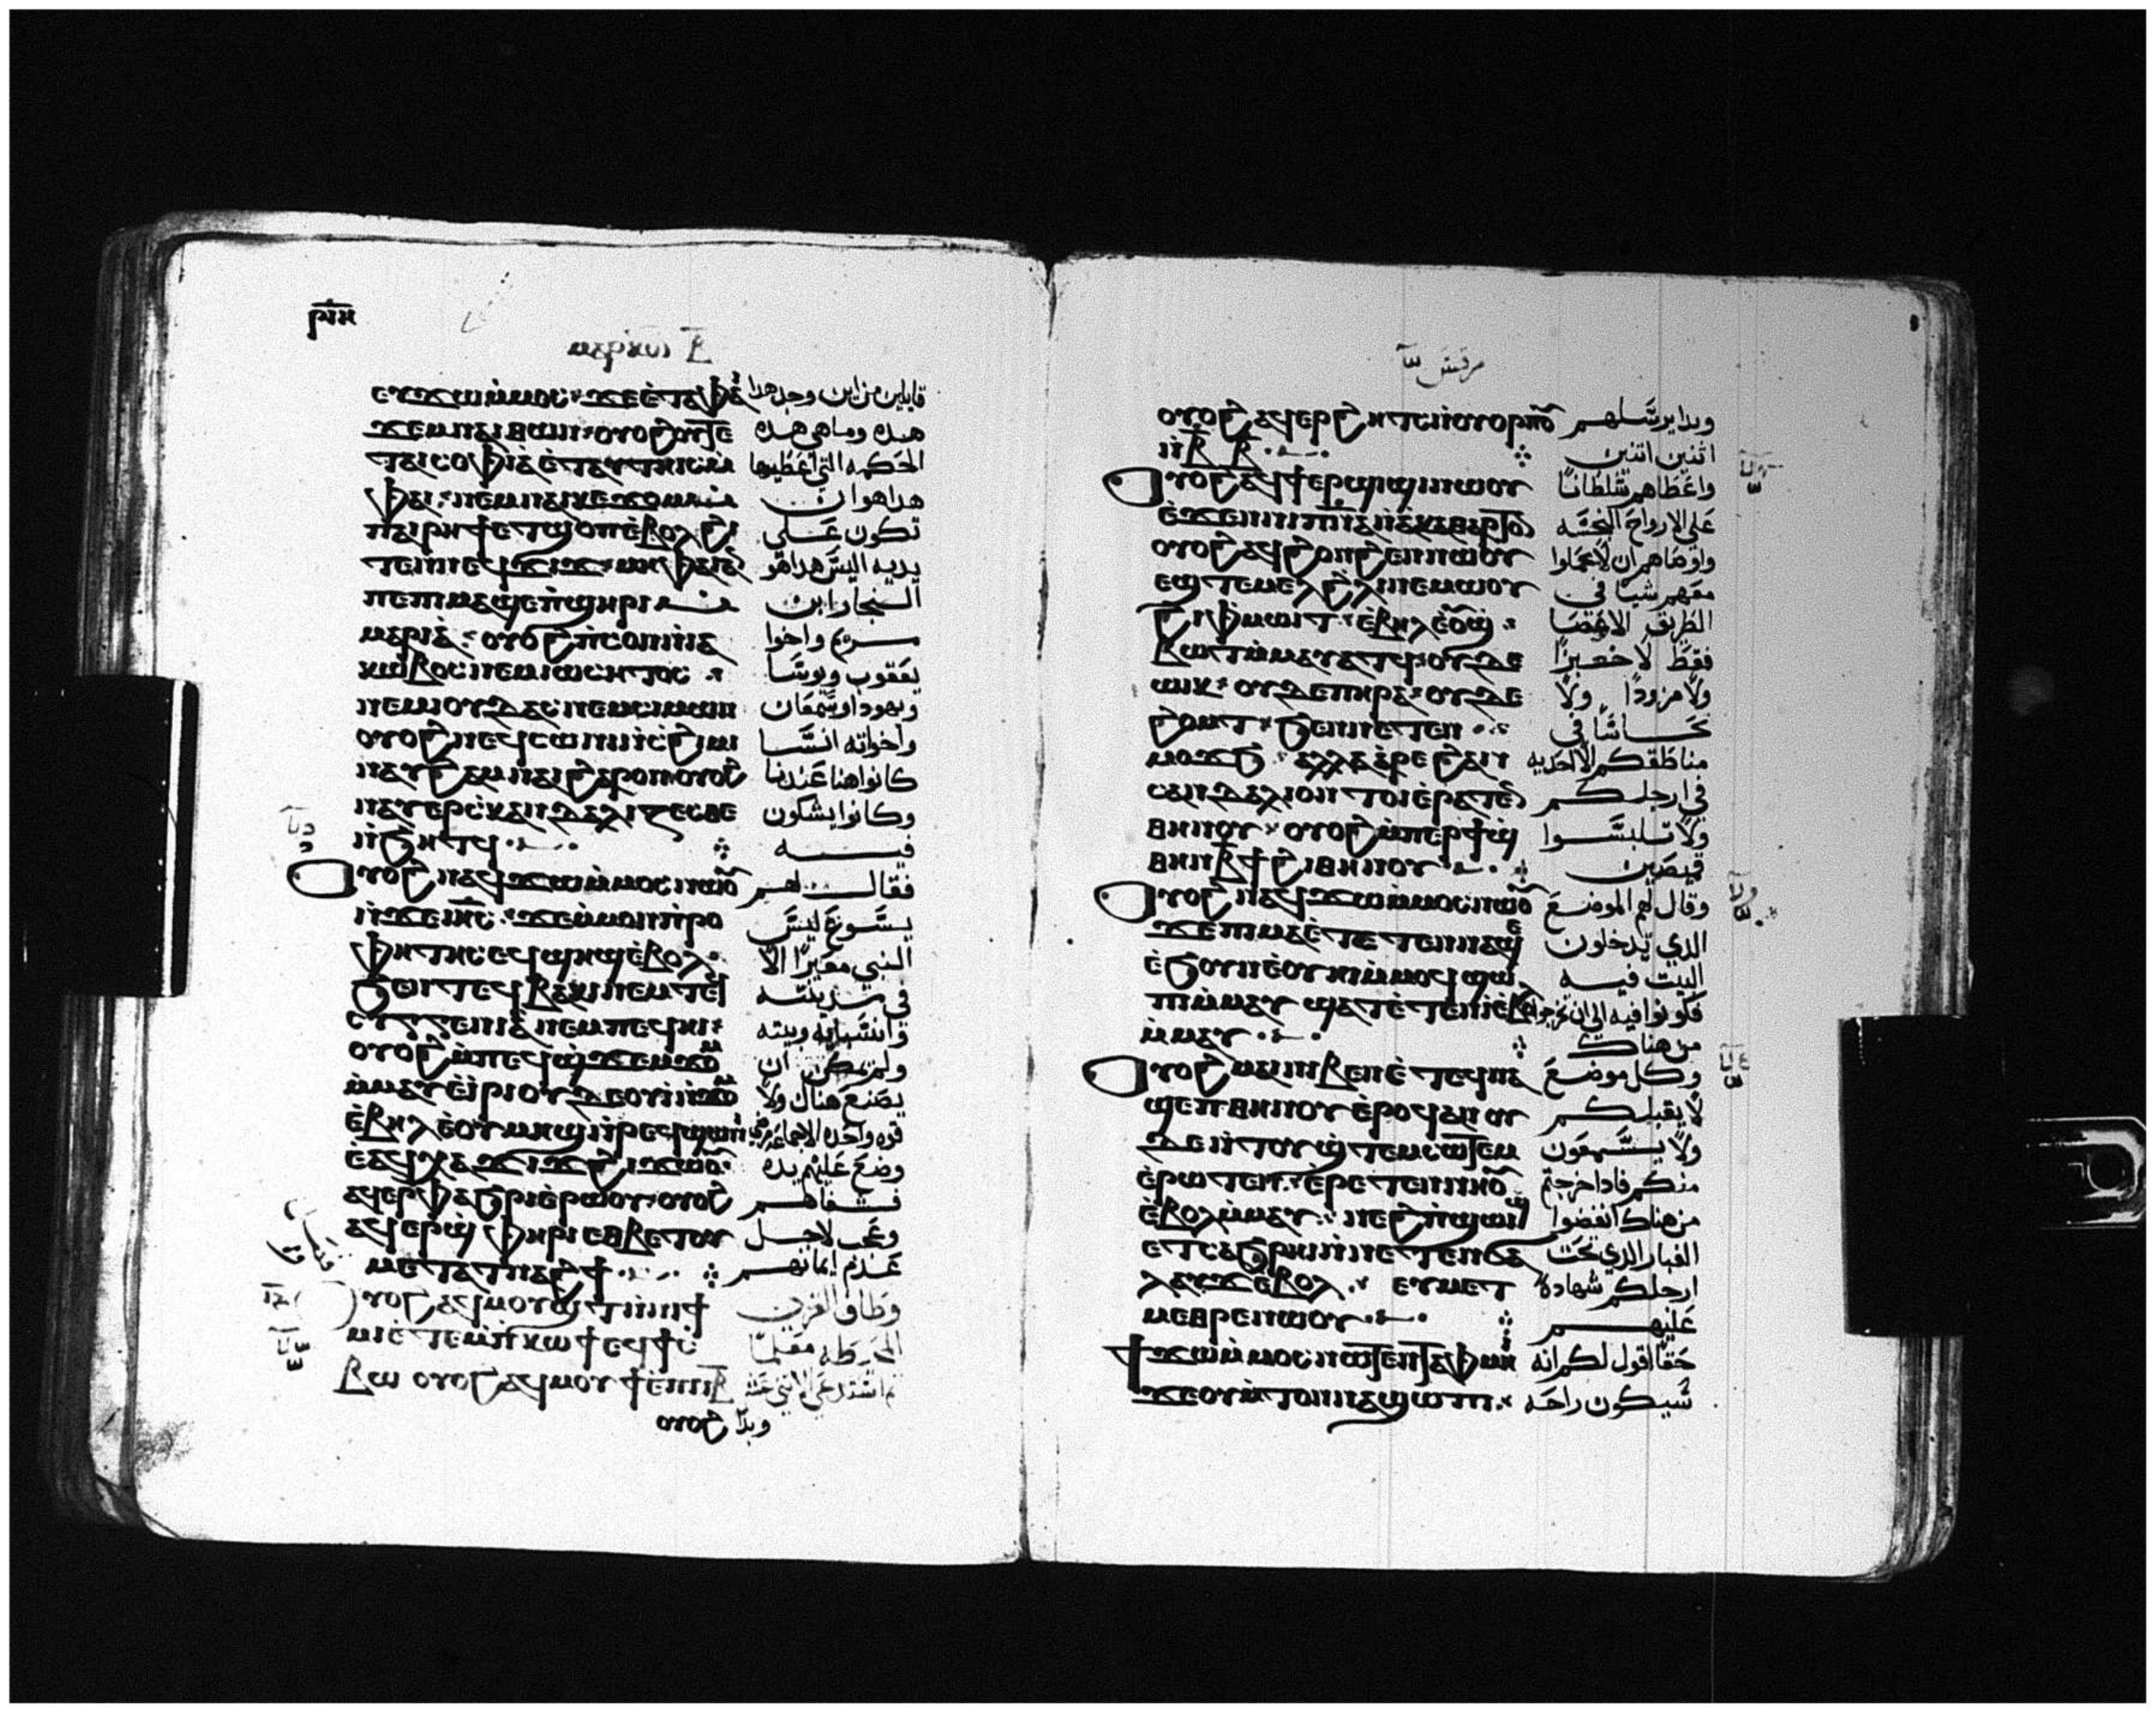 ⲣⲓⲏ
ⲙⲁⲣⲕⲟⲛ ⲃ
ⲉⲩϫⲱⲙⲙⲟⲥ ϫⲉⲉⲧⲁⲫⲁ قايلين من اين وجد هدا
ϫⲉⲙⲛⲁⲓⲑⲱⲛ ⲟⲩⲟϩ ⲟⲩⲧⲉ هده وما هي هده
ⲧⲁⲓⲥⲟⲫⲓⲁ ⲉⲧⲁⲩⲧⲏⲓⲥ الحكمه التي اعطيها
ⲫⲁⲓ ⲛⲉⲙⲛⲁⲓⲕⲉϫⲟⲙ هدا هو ان
ⲙⲡⲁⲓⲣⲏϯ ⲉⲧϣⲟⲡ ⲉⲃⲟⲗϩⲓ تكون على
ⲧⲉⲛⲛⲉϥϫⲓϫ ⲙⲏ ⲫⲁⲓⲁⲛ يديه اليس هدا هو
ⲡⲉ ⲡⲁⲙϣⲉ ⲡϣⲏⲣⲓ النجار ابن
ⲙⲁⲣⲓⲁ ⲟⲩⲟϩ ⲡⲥⲟⲛ ⲛⲓⲁ مريم واخوا
ⲕⲱⲃⲟⲥ ⲛⲉⲙ ⲓⲱⲥⲏⲧⲟⲥ يعقوب ويوسا
ⲛⲉⲙ ⲓⲟⲩⲇⲁⲥ ⲛⲉⲙ ⲥⲓⲙⲱⲛ ويهودا وسمعان
ⲟⲩⲟϩ ⲛⲉϥⲥⲱⲛⲓ ⲛⲥϩⲓⲙⲓ واخواته انسا
ⲛⲁⲩ ϩⲁⲙⲛⲁⲓ ϩⲁⲣⲟⲛ ⲟⲩⲟϩ كانوا هنا عندنا
ⲛⲁⲩⲉⲣⲥⲕⲁⲛⲇⲁⲗⲓⲍⲉⲥⲑⲉ وكانوا يشكون
ⲛϧⲏⲧϥ فيه
ⲟⲩⲟϩ ⲛⲁϥϫⲱⲙⲙⲟⲥ ⲛⲱⲟⲩ فقال لهم
ⲛϫⲉ ⲓⲏⲥ ϫⲉ ⲙⲙⲟⲛ ⲡⲣⲟ يسوع ليس
ⲫⲏⲧⲏⲥ ⲉϥϣⲏϣ ⲉⲃⲟⲗ النبي معيرا الا
ϧⲉⲛ ⲧⲉϥⲃⲁⲕⲓ ⲛⲉⲙ ⲧⲉϥ في مدينته
ⲥⲩⲅⲅⲉⲛⲓⲁ ⲛⲉⲙ ⲡⲉϥⲏⲓ وانسبايه وبيته
ⲟⲩⲟϩ ⲙⲡⲉϥϣϫⲉⲙϫⲟⲙ ولم يمكن ان
ⲙⲙⲁⲩ ⲉⲓⲣⲓ ⲟⲩⲇⲉ ⲟⲩⲓ ⲛϫⲟⲙ يصنع هناك ولا
ⲉⲃⲏⲗ ⲉⲟⲩⲙⲏϣ ⲛⲣⲉϥϣⲱⲛⲓ قوه واحده الا جماعه مرضي
ⲉⲁϥⲭⲁϫⲓϫ ϩⲓϫⲱⲟⲩ وضع عليهم يده
ⲁϥⲉⲣⲫⲁϧⲣⲓ ⲉⲣⲱⲟⲩ ⲟⲩⲟϩ فشفاهم
ⲁϥⲉⲣϣⲫⲏⲣⲓ ⲉⲑⲃⲉ ⲧⲟⲩ وعجب لاجل
ⲙⲉⲧⲁⲧⲛⲁϩϯ عدم ايمانهم
ⲟⲩⲟϩ ⲁϥⲙⲟⲩϣⲧ ⲛⲛⲓϯ وطاف القرى
ⲙⲓ ⲉⲧⲉⲙⲡⲕⲱϯ ⲉϥϯⲥ المحيطه معلما
ⲃⲱ ⲟⲩⲟϩ ⲁϥⲙⲟⲩϯ ⲉⲡⲓⲓⲃ
ⲟⲩⲟϩ وبدا
مرقس
ⲟⲩⲟϩ ⲁϥⲉⲣϩⲏⲧⲥ ⲛⲟⲩⲟⲣⲡⲟⲩ وبدا يرسلهم
ⲛⲃ ⲃ اتنين اتنين
ⲟⲩⲟϩ ⲁϥϯⲉⲣϣⲓϣⲓ ⲛⲱⲟⲩ واعطاهم سلطانا
ⲉϫⲉⲛ ⲛⲓⲡⲛⲁ ⲛⲁⲕⲁⲑⲁⲣⲧⲟⲛ على الارواح النجسه
ⲟⲩⲟϩ ⲁϥϩⲟⲛϩⲉⲛ ⲛⲱⲟⲩ واوصاهم ان لا يحملوا
ⲉϣⲧⲉⲙⲉⲗ ϩⲗⲓ ⲛⲉⲙⲱⲟⲩ معهم شيا في
ϩⲓ ⲫⲙⲱⲓⲧ ⲉⲃⲏⲗ ⲉⲟⲩϣ الطريق الا عصا
ⲃⲱⲧ ⲙⲙⲁⲩⲁⲧϥ ⲟⲩⲇⲉ فقط لا خبزا
ⲱⲓⲕ ⲟⲩⲇⲉ ⲡⲏⲣⲁ ⲟⲩⲇⲉ ولا مزودا ولا
ϩⲟⲙⲧ ϧⲉⲛ ⲛⲉⲧⲉⲛ نحاسا في
ⲙⲟϫϧ ⲁⲗⲗⲁ ⲁⲣⲉ ϩⲁⲛ مناطقكم الا احديه
ⲥⲁⲛⲇⲁⲗⲓⲟⲛ ⲧⲟⲓ ⲉⲣⲁⲧⲉⲛ في ارجلكم
ⲑⲏⲛⲟⲩ ⲟⲩⲟϩ ⲙⲡⲉⲣϯϣ ولا تلبسوا
ⲑⲏⲛ ⲃϯ ϩⲓ ⲑⲏⲛⲟⲩ قميصين
ⲟⲩⲟϩ ⲛⲁϥϫⲱⲙⲙⲟⲥ ⲛⲱⲟⲩ وقال لهم الموضع
ϫⲉ ⲡⲓⲙⲁ ⲉⲧⲉⲧⲉⲛⲛⲁϣⲉ الدي تدخلون
ⲉϧⲟⲩⲛ ⲉⲟⲩⲏⲓ ⲙⲙⲟϥ ϣⲱ البيت فيه
ⲡⲓ ⲙⲙⲁⲩ ϣⲁⲧⲉⲧⲉⲛⲓ ⲉⲃⲟⲗ فكونوا فيه الى ان تخرجوا
ⲙⲙⲁⲩ من هناك
ⲟⲩⲟϩ ⲙⲁⲓ ⲛⲓⲃⲉⲛ ⲉⲧⲉϥⲛⲁ وكل موضع
ϣⲉⲡ ⲑⲏⲛⲟⲩ ⲉⲣⲟϥ ⲁⲛ ⲟⲩ لا يقبلكم
ⲇⲉ ⲛⲧⲟⲩϣⲧⲉⲙⲥⲱⲧⲉⲙ ولا يسمعون
ⲉⲣⲱⲧⲉⲛ ⲉⲣⲉⲧⲉⲛⲛⲏⲟⲩ منكم فادا خرجتم
ⲉⲃⲟⲗ ⲙⲙⲁⲩ ⲛⲉϩⲡϣⲱⲓϣ من هناك انفضوا
ⲉⲧⲥⲁϧⲣⲏⲓ ⲛⲛⲉⲧⲉⲛϭⲁ الغبار الدي تحت
ⲗⲁⲩϫ ⲉⲃⲟⲗ ⲉⲩⲙⲉⲧ ارجلكم شهاده
ⲙⲉⲑⲣⲉ ⲛⲱⲟⲩ عليهم
ϯϫⲱⲙⲙⲟⲥ ⲛⲱⲧⲉⲛ ⲧⲁⲫⲙⲏⲓ حقا اقول لكم انه
ϫⲉ ⲟⲩⲙⲧⲟⲛ ⲛⲁϣⲱⲡⲓ سيكون راحه